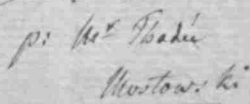 p: Mr Thadée
Mostowski